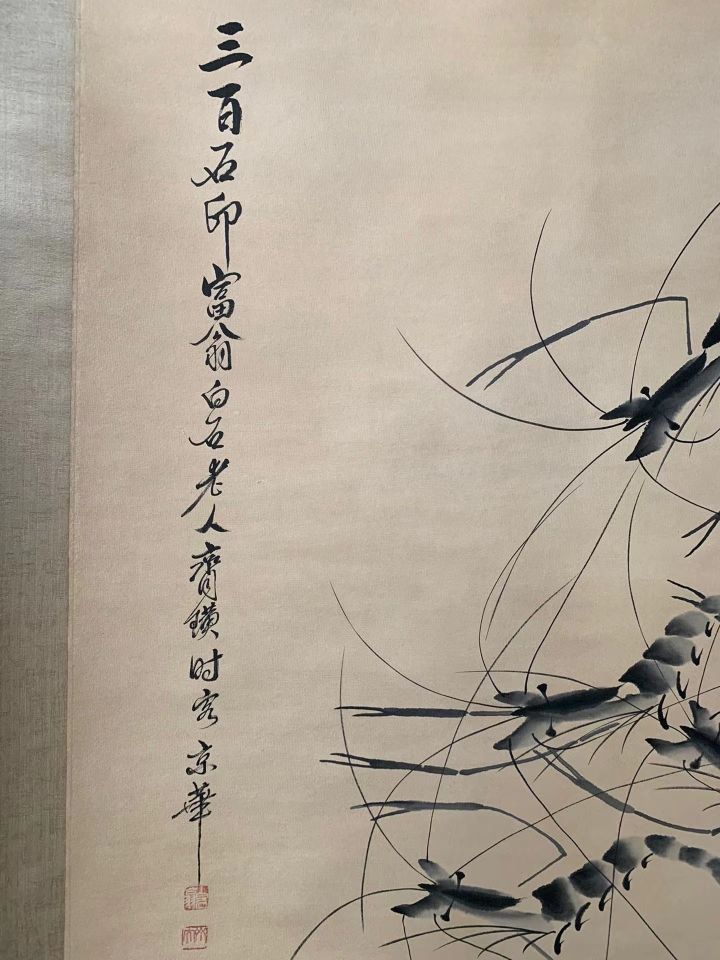 三百石印富翁白石老人齊璜时客京華